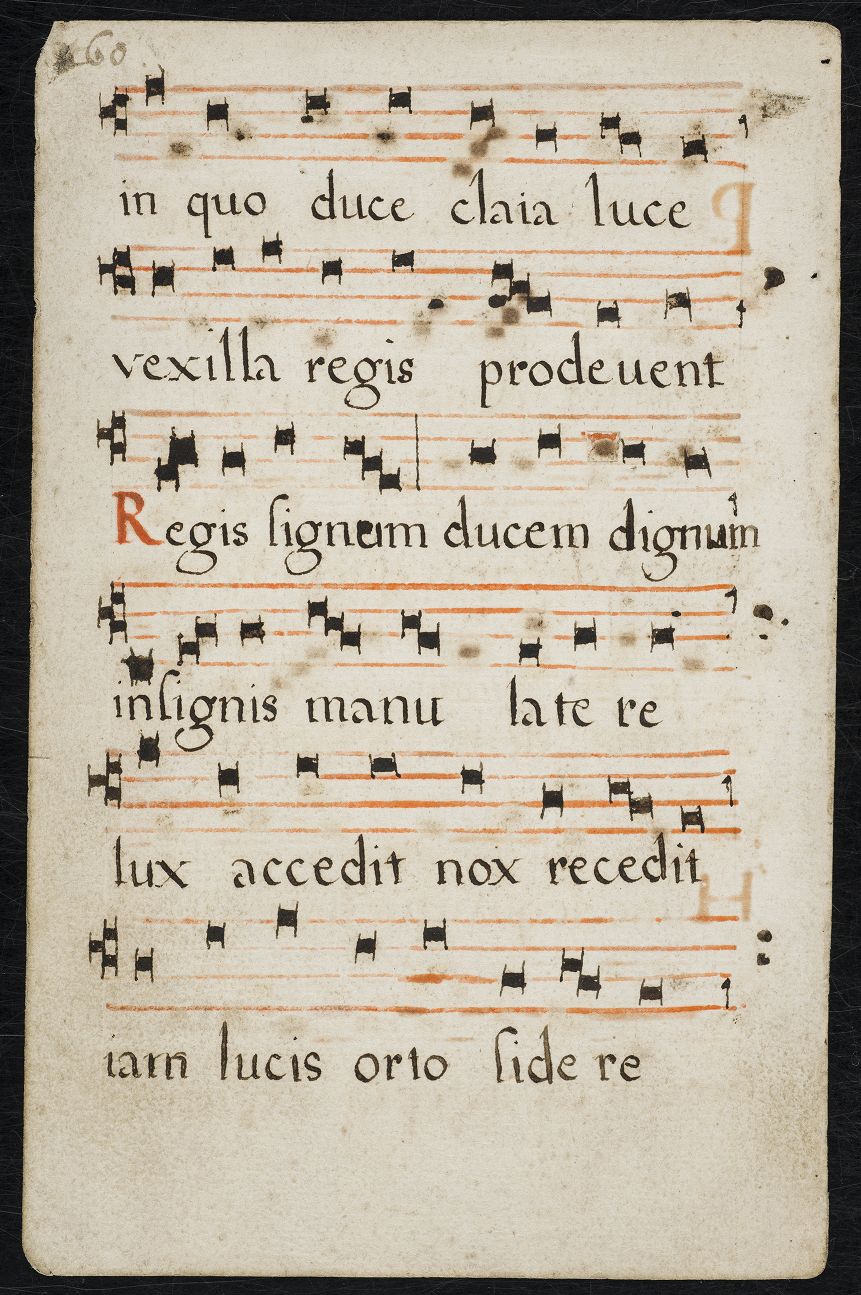 60
in quo duce claia luce
vexilla regis prodeuent
Regis ſignum ducem dignum
inſignis manu latere
lux accedit nox recedit
iam lucis orto ſidere